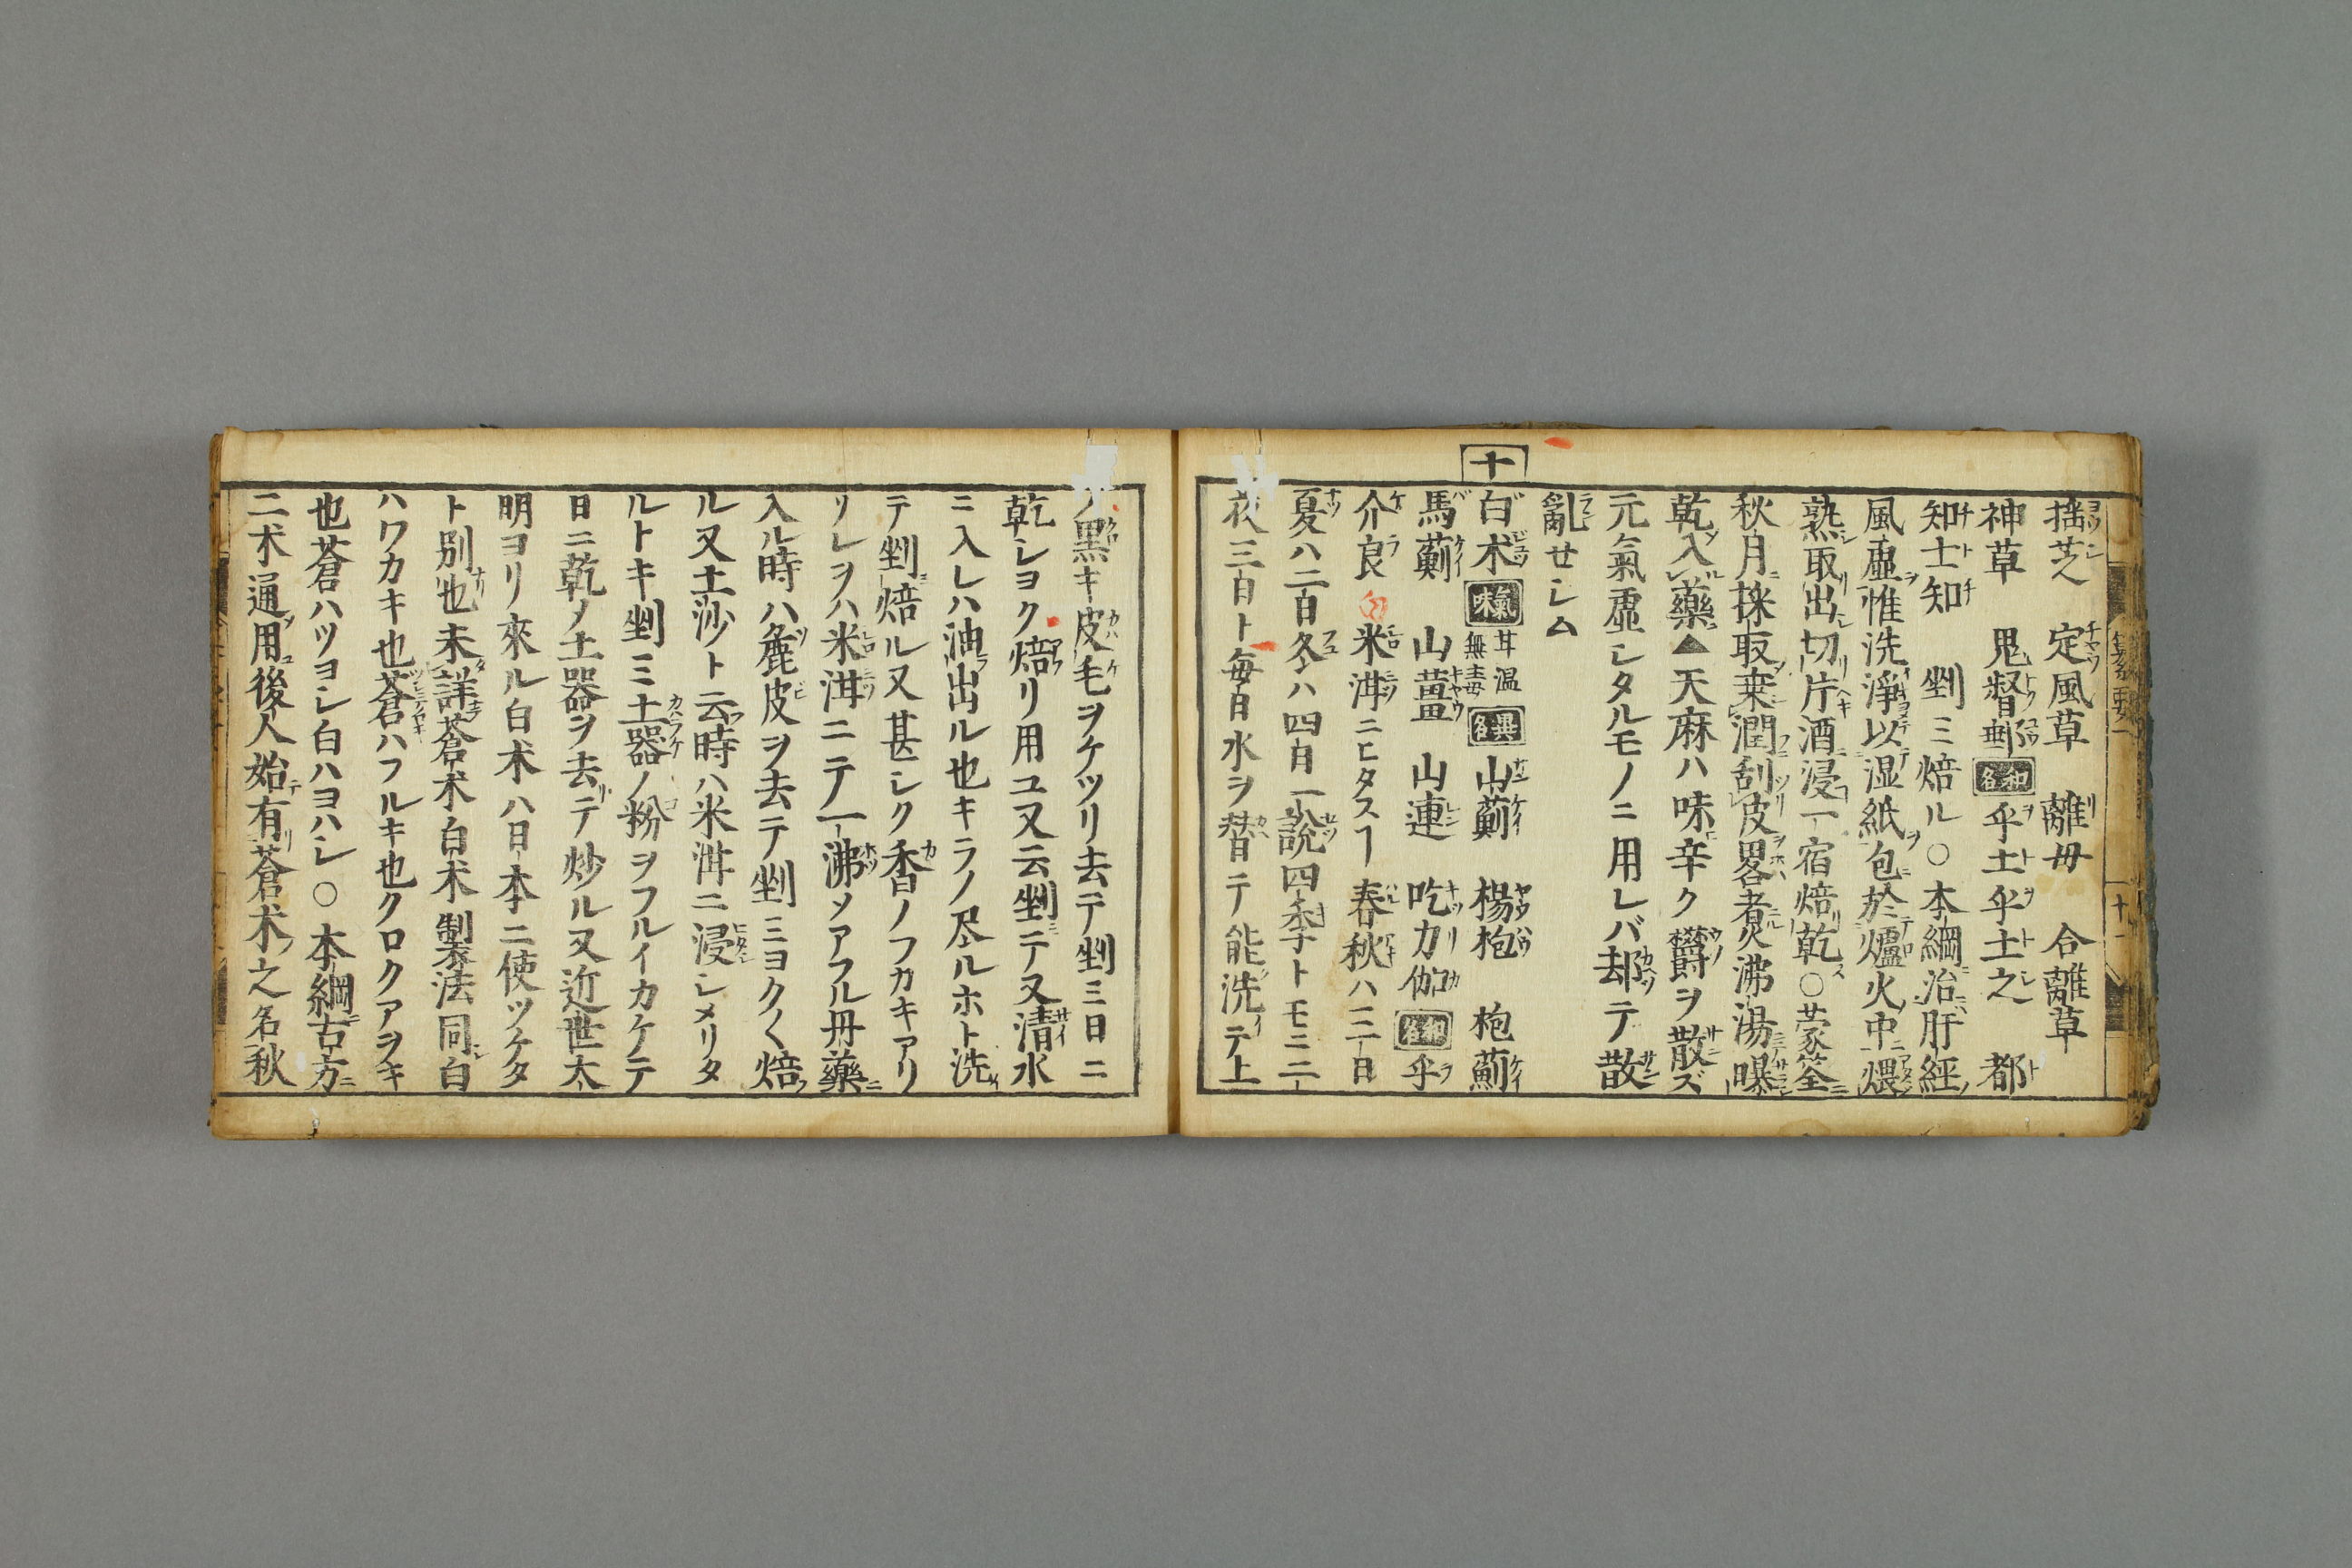 搖芝　定風草　離毋　合離草
神草　鬼督郵　和名　乎土乎土之　都
知士知　剉ミ焙ル○本綱治肝經
風虛惟洗淨以湿紙包於爐火中煨
熟取出切片酒浸一宿焙乾○蒙筌
秋月採取乗潤刮皮畧煮沸湯曝
乾入藥▲天麻ハ味辛ク欝ヲ散ズ
元氣虛シタルモノニ用レバ却テ散
亂せシム
十
白朮　氣味　甘温無毒　異名　山薊　楊枹　枹薊
馬薊　山薑　山連　吃力伽　和名　乎
介良　米泔ニヒタスヿ春秋ハ三日
夏ハ二日冬ハ四日一說四季トモニ二
夜三日ト毎日水ヲ替テ能洗テ上
ノ黒キ皮毛ヲケツリ去テ剉ミ日ニ
乾シヨク焙リ用ユ又云剉テ又清水
ニ入レハ油出ル也キラノ尽ルホト洗
テ剉焙ル又甚シク香ノフカキアリ
ソレヲハ米泔ニテ一沸ソアフル丹藥ニ
入ル時ハ麁皮ヲ去テ剉ミヨク〱焙
ル又土沙ト云時ハ米泔ニ浸シメリタ
ルトキ剉ミ土器ノ粉ヲフルイカケテ
日ニ乾ノ土器ヲ去テ炒ル又近世太
明ヨリ來ル白朮ハ日本ニ使ツケタ
ト別也未詳蒼朮白朮製法同白
ハワカキ也蒼ハフルキ也クロクアヲキ
也蒼ハツヨシ白ハヨハシ○本綱古方
二朮通用後人始有蒼朮之名秋